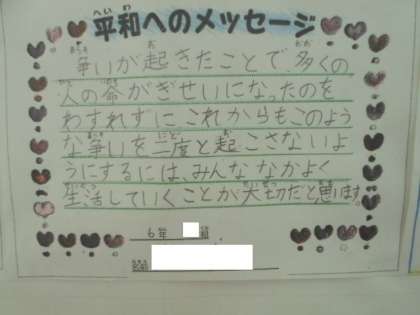 平和へのメッセージ
争いが起きたことで、多くの
人の命がぎせいになったのを
わすれずにこれからもこのよう
な争いを二度と起こさないよ
うにするには、みんななかよく
生活していくことが大切だと思います。
6年 組
名前